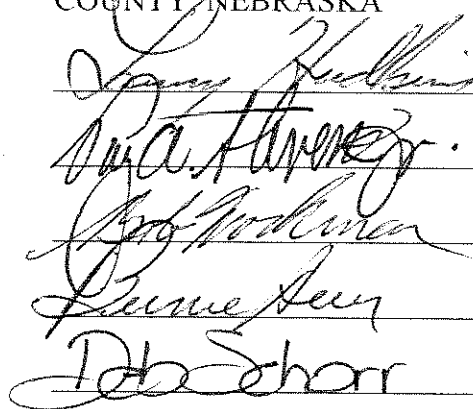 COUNTY, NEBRASKA
Larry Hudkins
Ray A. Stevens Jr.
Bob Workman
Bernie Heier
Deb Schorr